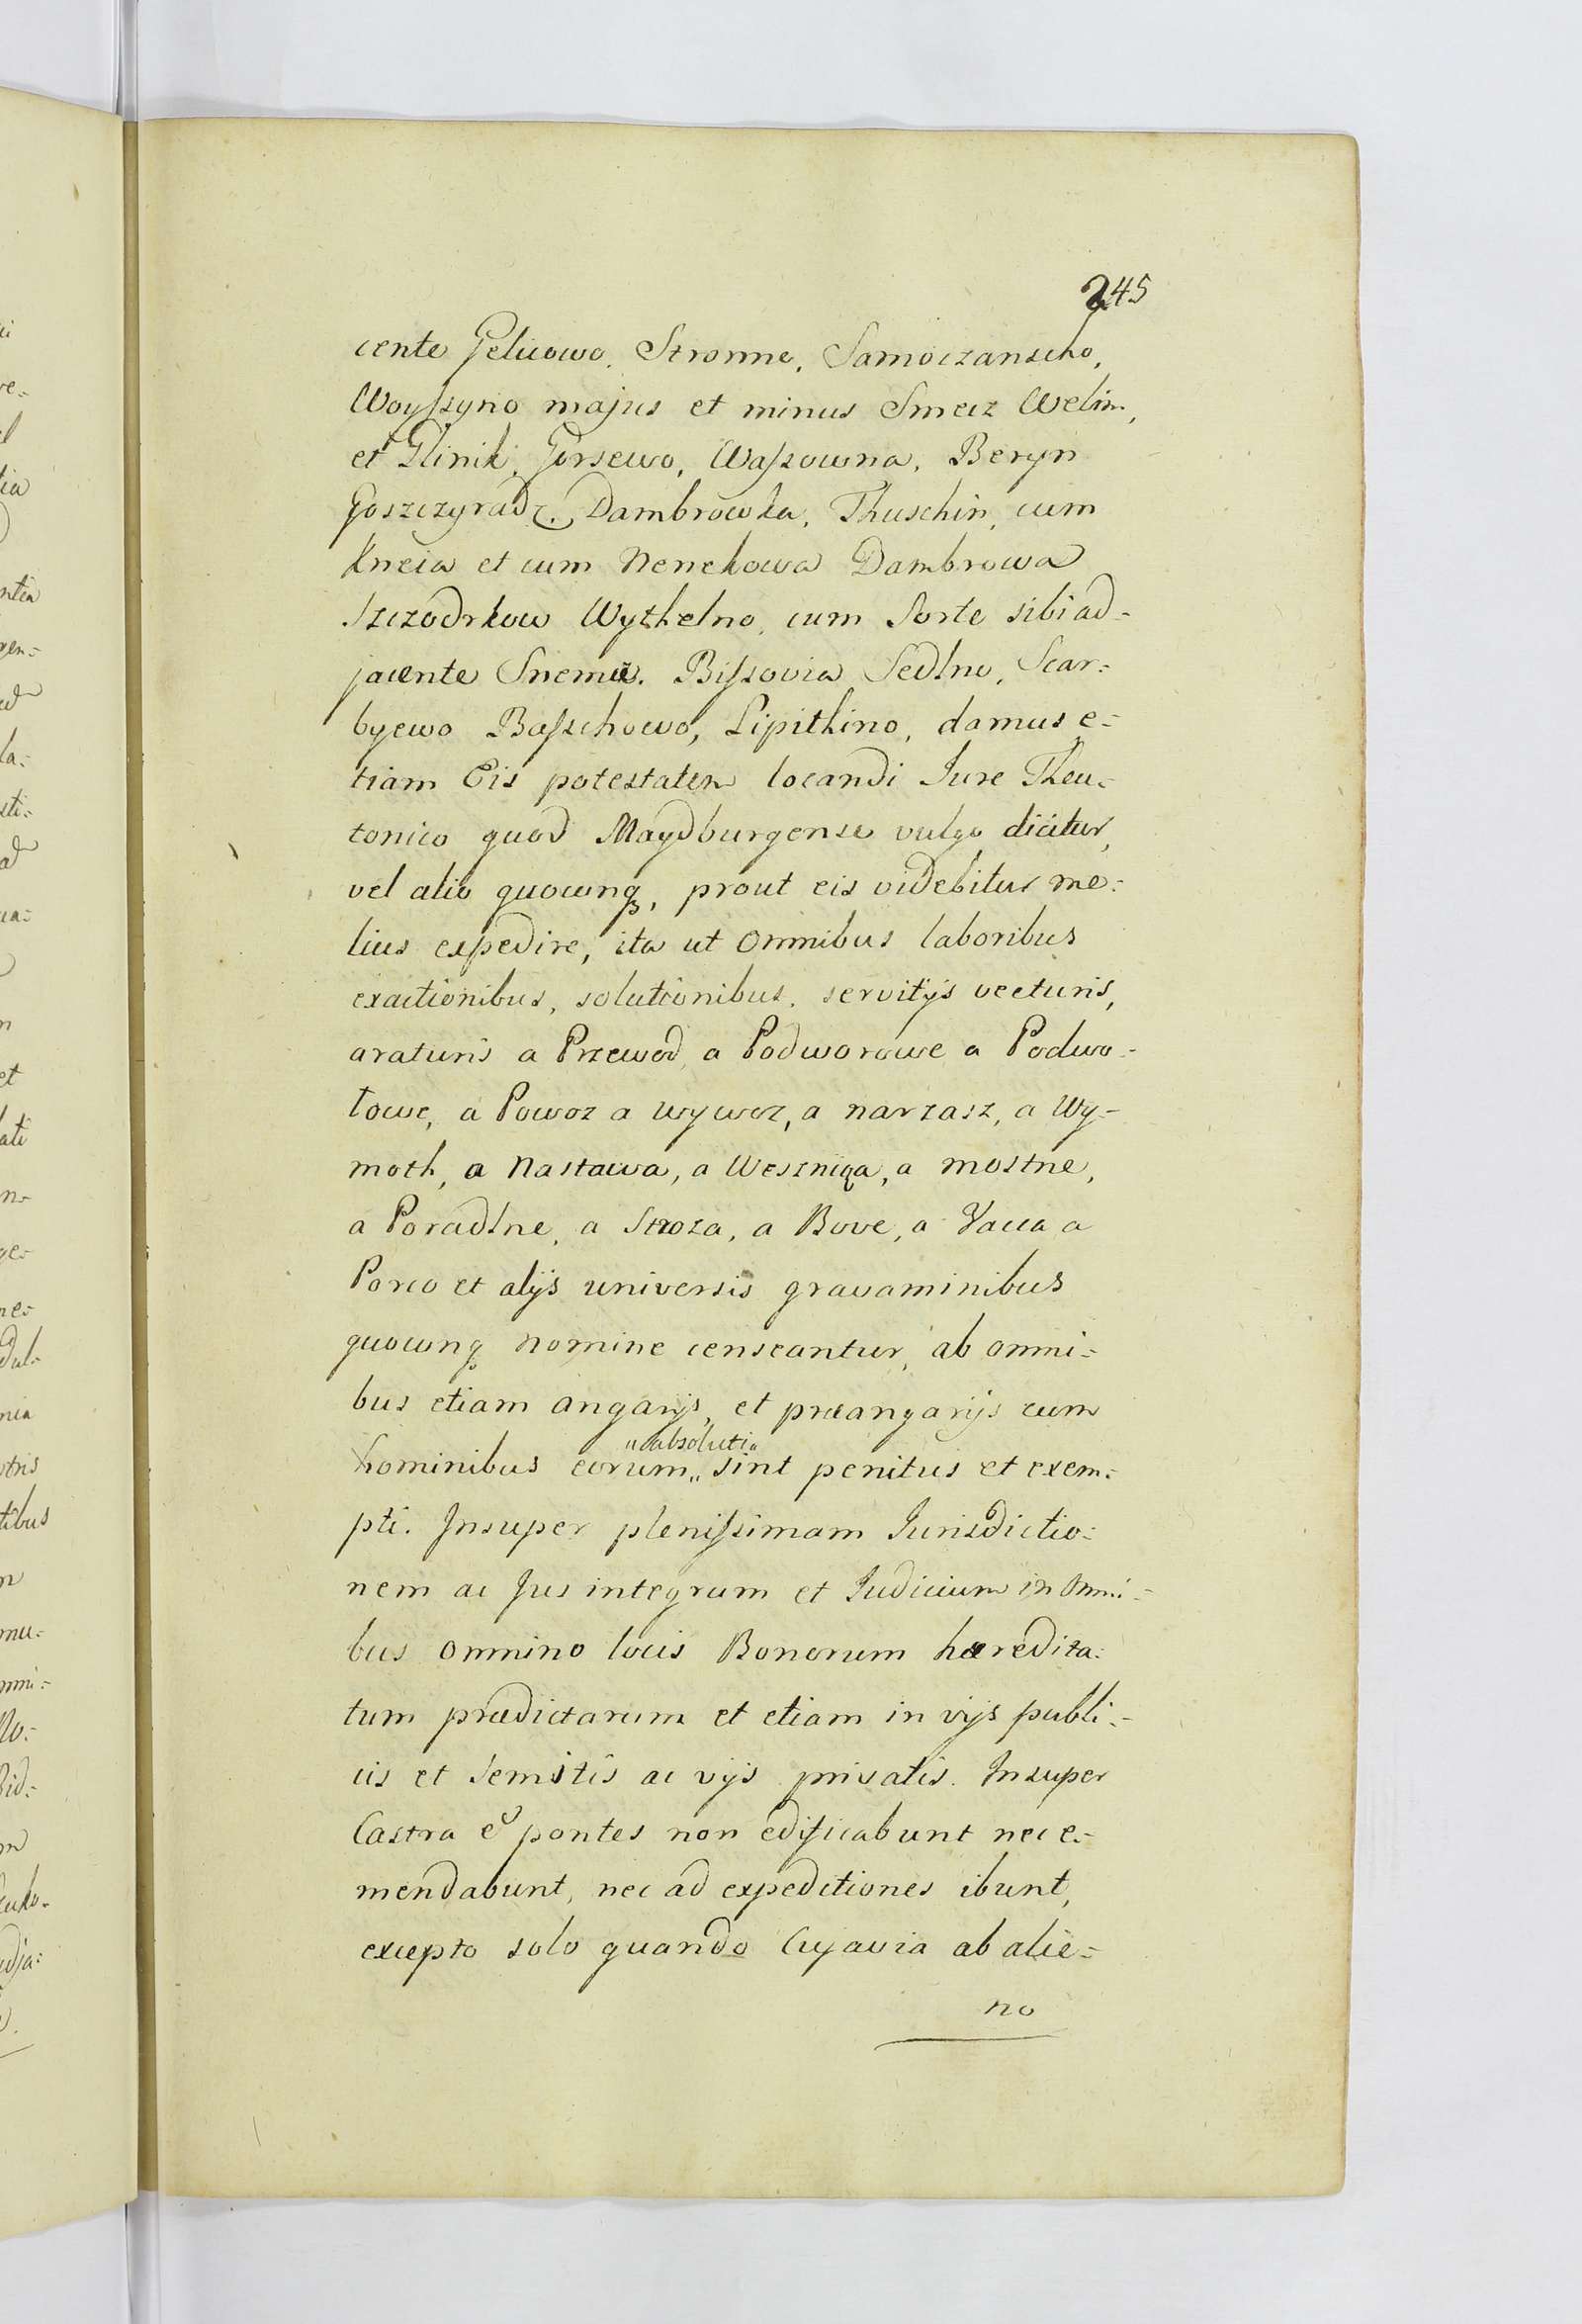 245
cente Gelicowo. Stronne, Samoczanscho,
Woyſsyno majus et minus Smecz Welim,
et Glinik, Gorsewo, Waſzowna, Beryn
Goszczyradz. Dambrowka, Thuschin, cum
Kneia et cum Nenekowa Dambrowa
Szczodrkow Wythelno, cum Sorte sibi ad-
jacente Snemie. Biſsovia Sedlno, Scar-
byewo Baſschowo, Lipithino, damus e-
tiam Eis potestatem locandi Jure Theu-
tonico quod Maydburgense vulgo dicitur,
vel alio quocunqȝ, prout eis videbitur me-
lius expedire, ita ut omnibus laboribus
exactionibus, solutionibus, servitijs vecturis,
araturis a Przewod, a Podworowe a Podwo-
rowe, a Powoz a wywoz, a narzasz, a Wy-
moth, a Nastawa, a Weszniqa, a mostne,
a Poradlne, a Stroza, a Bove, a Vacca a
Porco et alijs universis gravaminibus
quocunqȝ nomine censeantur, ab omni-
bus etiam angarijs, et præangarijs cum
„absoluti„
hominibus eorum„ sint penitus et exem-
pti. Insuper pleniſsimam Jurisdictio-
nem ac Jus integrum et Judicium in omni-
bus omnino locis Bonorum hæredita-
tum prædictarum et etiam in vijs publi-
cis et Semitis ac vijs privatis. Insuper
Castra et pontes non edificabunt nec e-
mendabunt, nec ad expeditiones ibunt,
excepto solo quando Cujavia ab alie-
no